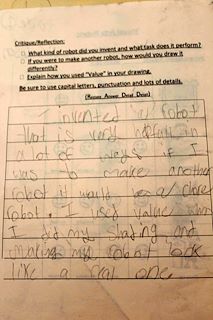 Critique/Reflection:
□ What kind of robot did you invent and what task does it perform?
□ If you were to make another robot, how would you draw it
differently?
□ Explain how you used "Value" in your drawing.
Be sure to use capital letters, punctuation and lots of details.
(Restate Answer Detail Detail)
I invented a robot
that is very helpful in
a lot of ways if I
was to make another
robot it would be a
robot. I used value when
I did my shading and
making my robot look
like a real one.